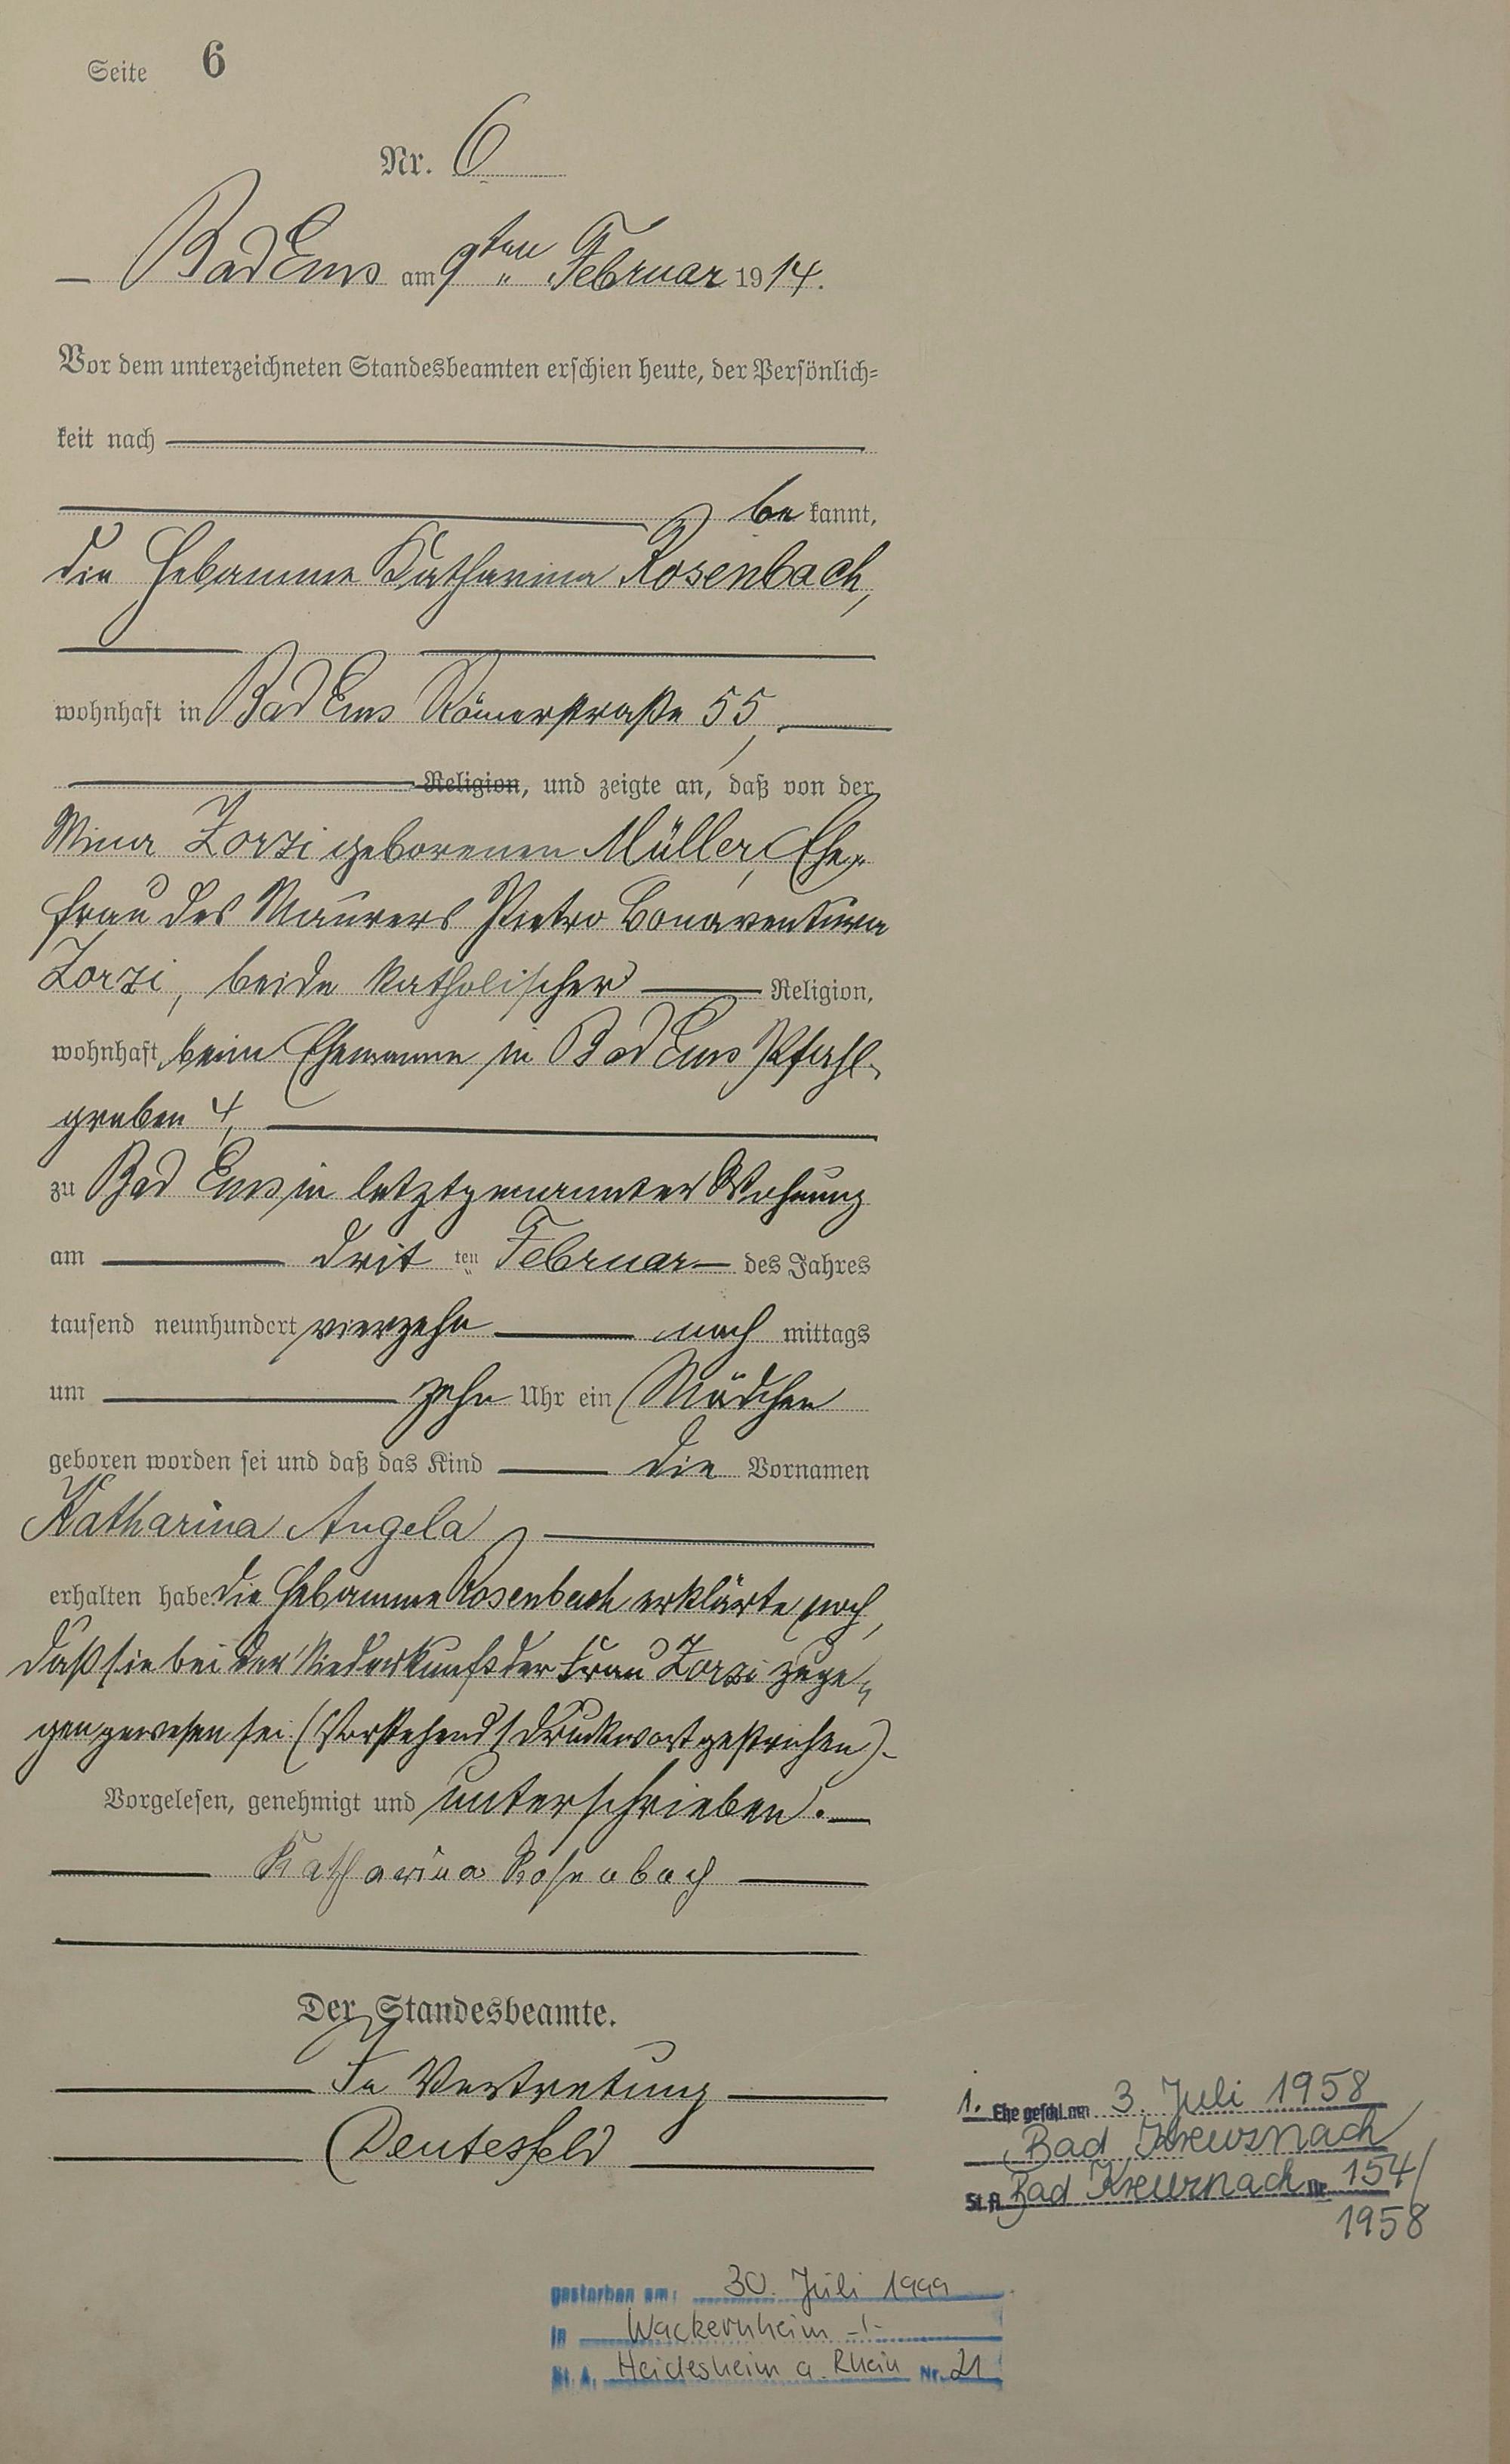 Seite 6
Nr. 6
Bad Ems am 9ten Februar 1914.
Vor dem unterzeichneten Standesbeamten erschien heute, der Persönlich=
keit nach
be kannt,
die Hebamme Katharina Rosenbach,
wohnhaft in Bad Ems Römerstraße 55,
Religion, und zeigte an, daß von der
Mina Zorzi geborenen Müller, Ehe=
frau des Maurers Pietro Bonaventura
Zorzi, beide katholischer Religion,
wohnhaft beim Ehemanne in Bad Ems Pfahl=
graben 4,
zu Bad Ems in letztgenannter Wohnung
am drit ten Februar des Jahres
tausend neunhundert vierzehn nach mittags
um zehn Uhr ein Mädchen
geboren worden sei und daß das Kind die Vornamen
Katharina Angela
erhalten habe. Die Hebamme Rosenbach erklärte noch,
daß sie bei der Niederkunft der Frau Zorzi zuge=
gen gewesen sei. (Vorstehend 1 Druckwort gestrichen).
Vorgelesen, genehmigt und unterschrieben.
Katharina Rosenbach
Der Standesbeamte.
In Vertretung
Deutesfeld
1. Ehe geschl. am 3. Juli 1958
Bad Kreuznach
St.A. Bad Kreuznach Nr. 154/
1958
gestorben am: 30. Juli 1999
in Wackernheim -/-
St. A. Heidesheim a. Rhein Nr. 21